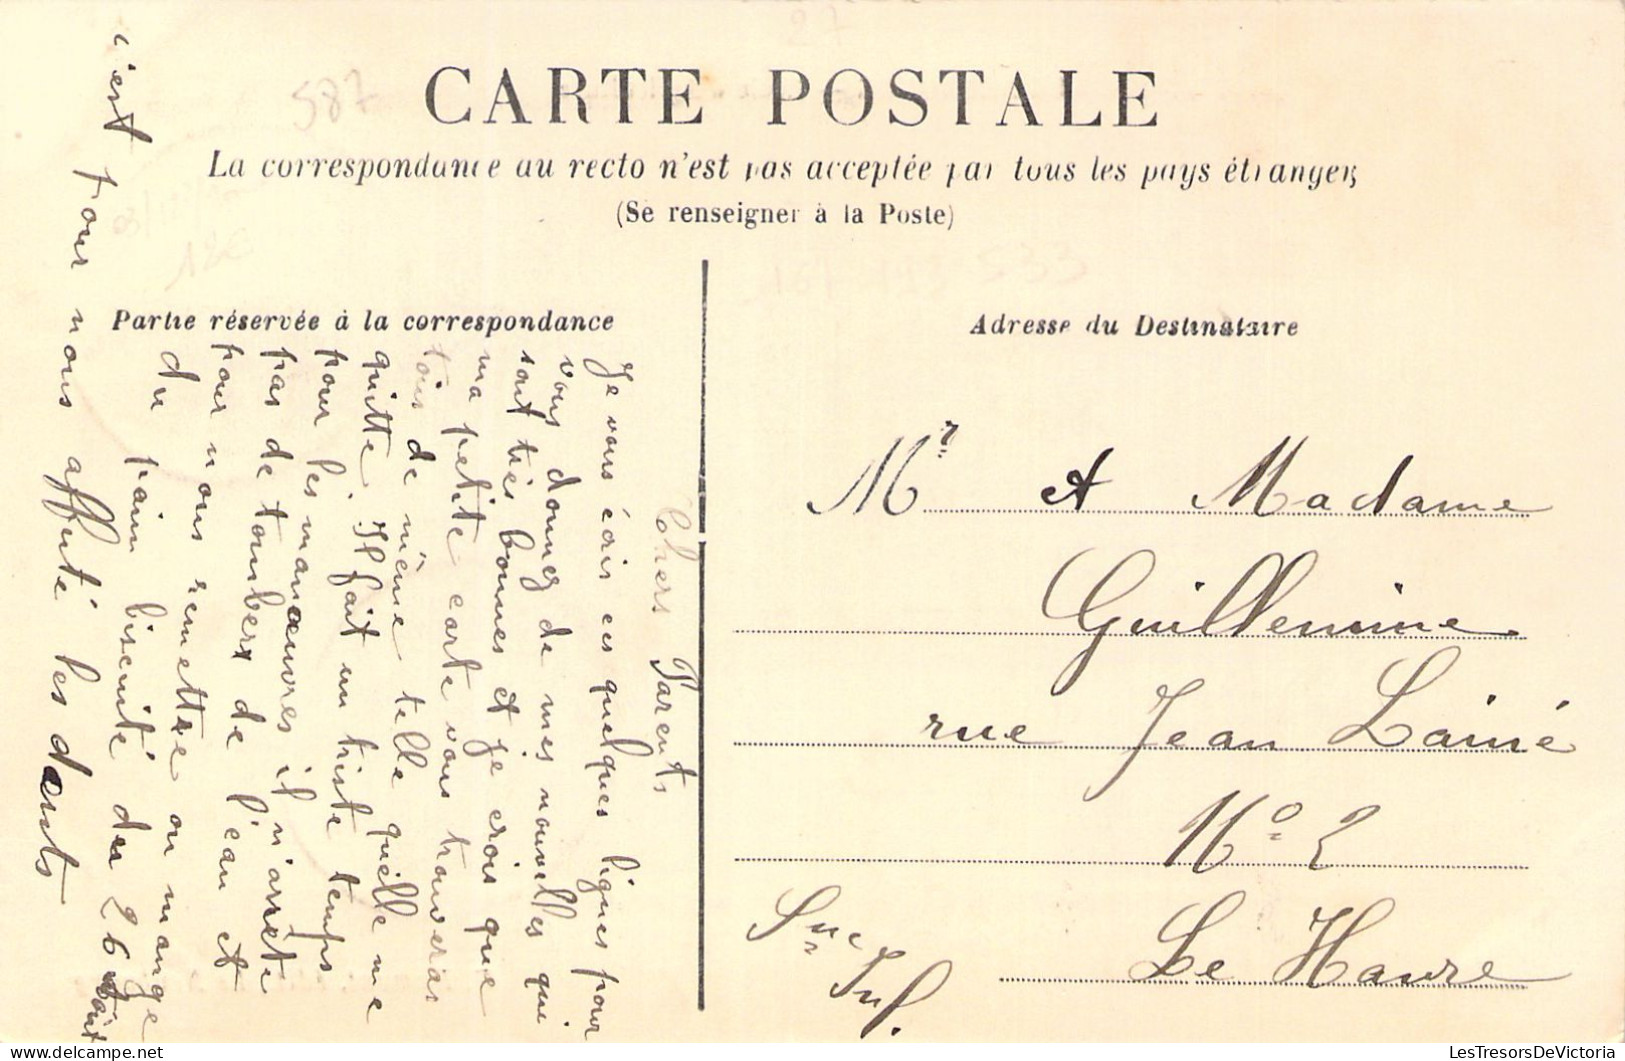 CARTE POSTALE
La correspondance au recto n'est pas acceptée par tous les pays étrangers
(Se renseigner à la Poste)
Partie réservée à la correspondance
Adresse du Destinataire
Chers Parents
Je vous écris ces quelques lignes pour
vous donnez de mes nouvelles qui
sont très bonnes et je crois que
ma petite carte vous trouveras
tous de même telle quelle me
quitte. Il fait un triste temps
pour les manœuvres il n'arrête
pas de tomber de l'eau et
pour nous remettre on mange
du pain biscuité du 26 août
c'est pour nous affuté les dents
Mr et Madame
Guillemine
rue Jean Lainé
No 2
Le Havre
Sne Inf.
587
12€
533
LesTresorsDeVictoria